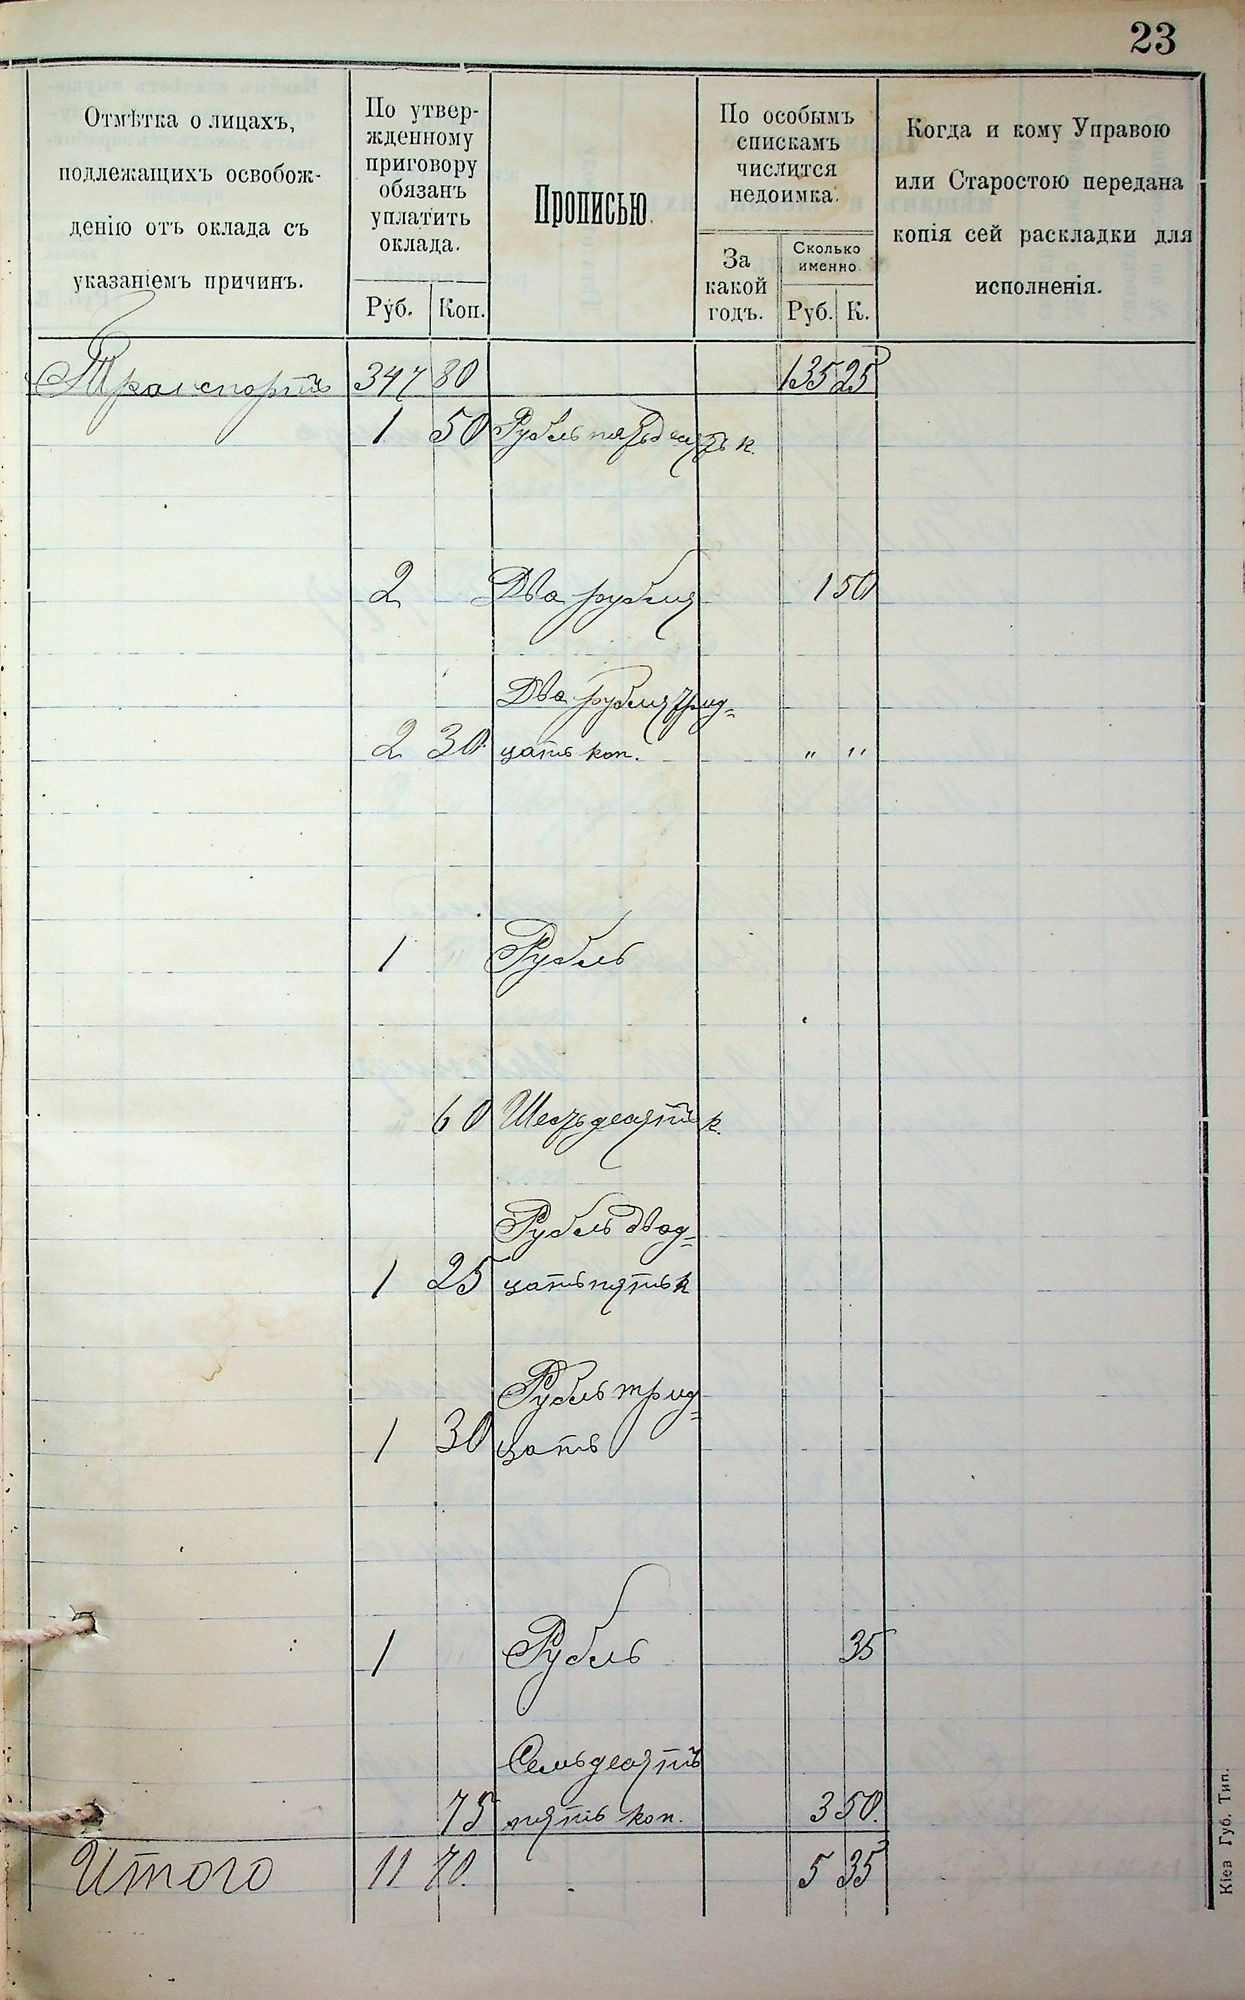 23
Отмѣтка о лицахъ,
подлежащихъ освобож-
денію отъ оклада съ
указаніемъ причинъ.
По утвер-
жденному
приговору
обязанъ
уплатить
оклада.
Руб. Коп.
Прописью.
По особымъ
спискамъ
числится
недоимка.
За
какой
годъ.
Сколько
именно.
Руб. К.
Когда и кому Управою
или Старостою передана
копія сей раскладки для
исполненія.
Транспортъ 347 80 135 25
1 50 Рубль пятьдесятъ к.
2 Два рубля 1 50
Два рубля трид=
2 30 цать коп. " "
1 " Рубль
60 Шестьдесятъ к.
Рубль двад=
1 25 цать пять к
Рубль трид=
1 30 цать
1 Рубль 35
Семьдесятъ
75 пять коп. 3 50.
Итого 11 70. 5 35
Кіев Губ. Тип.